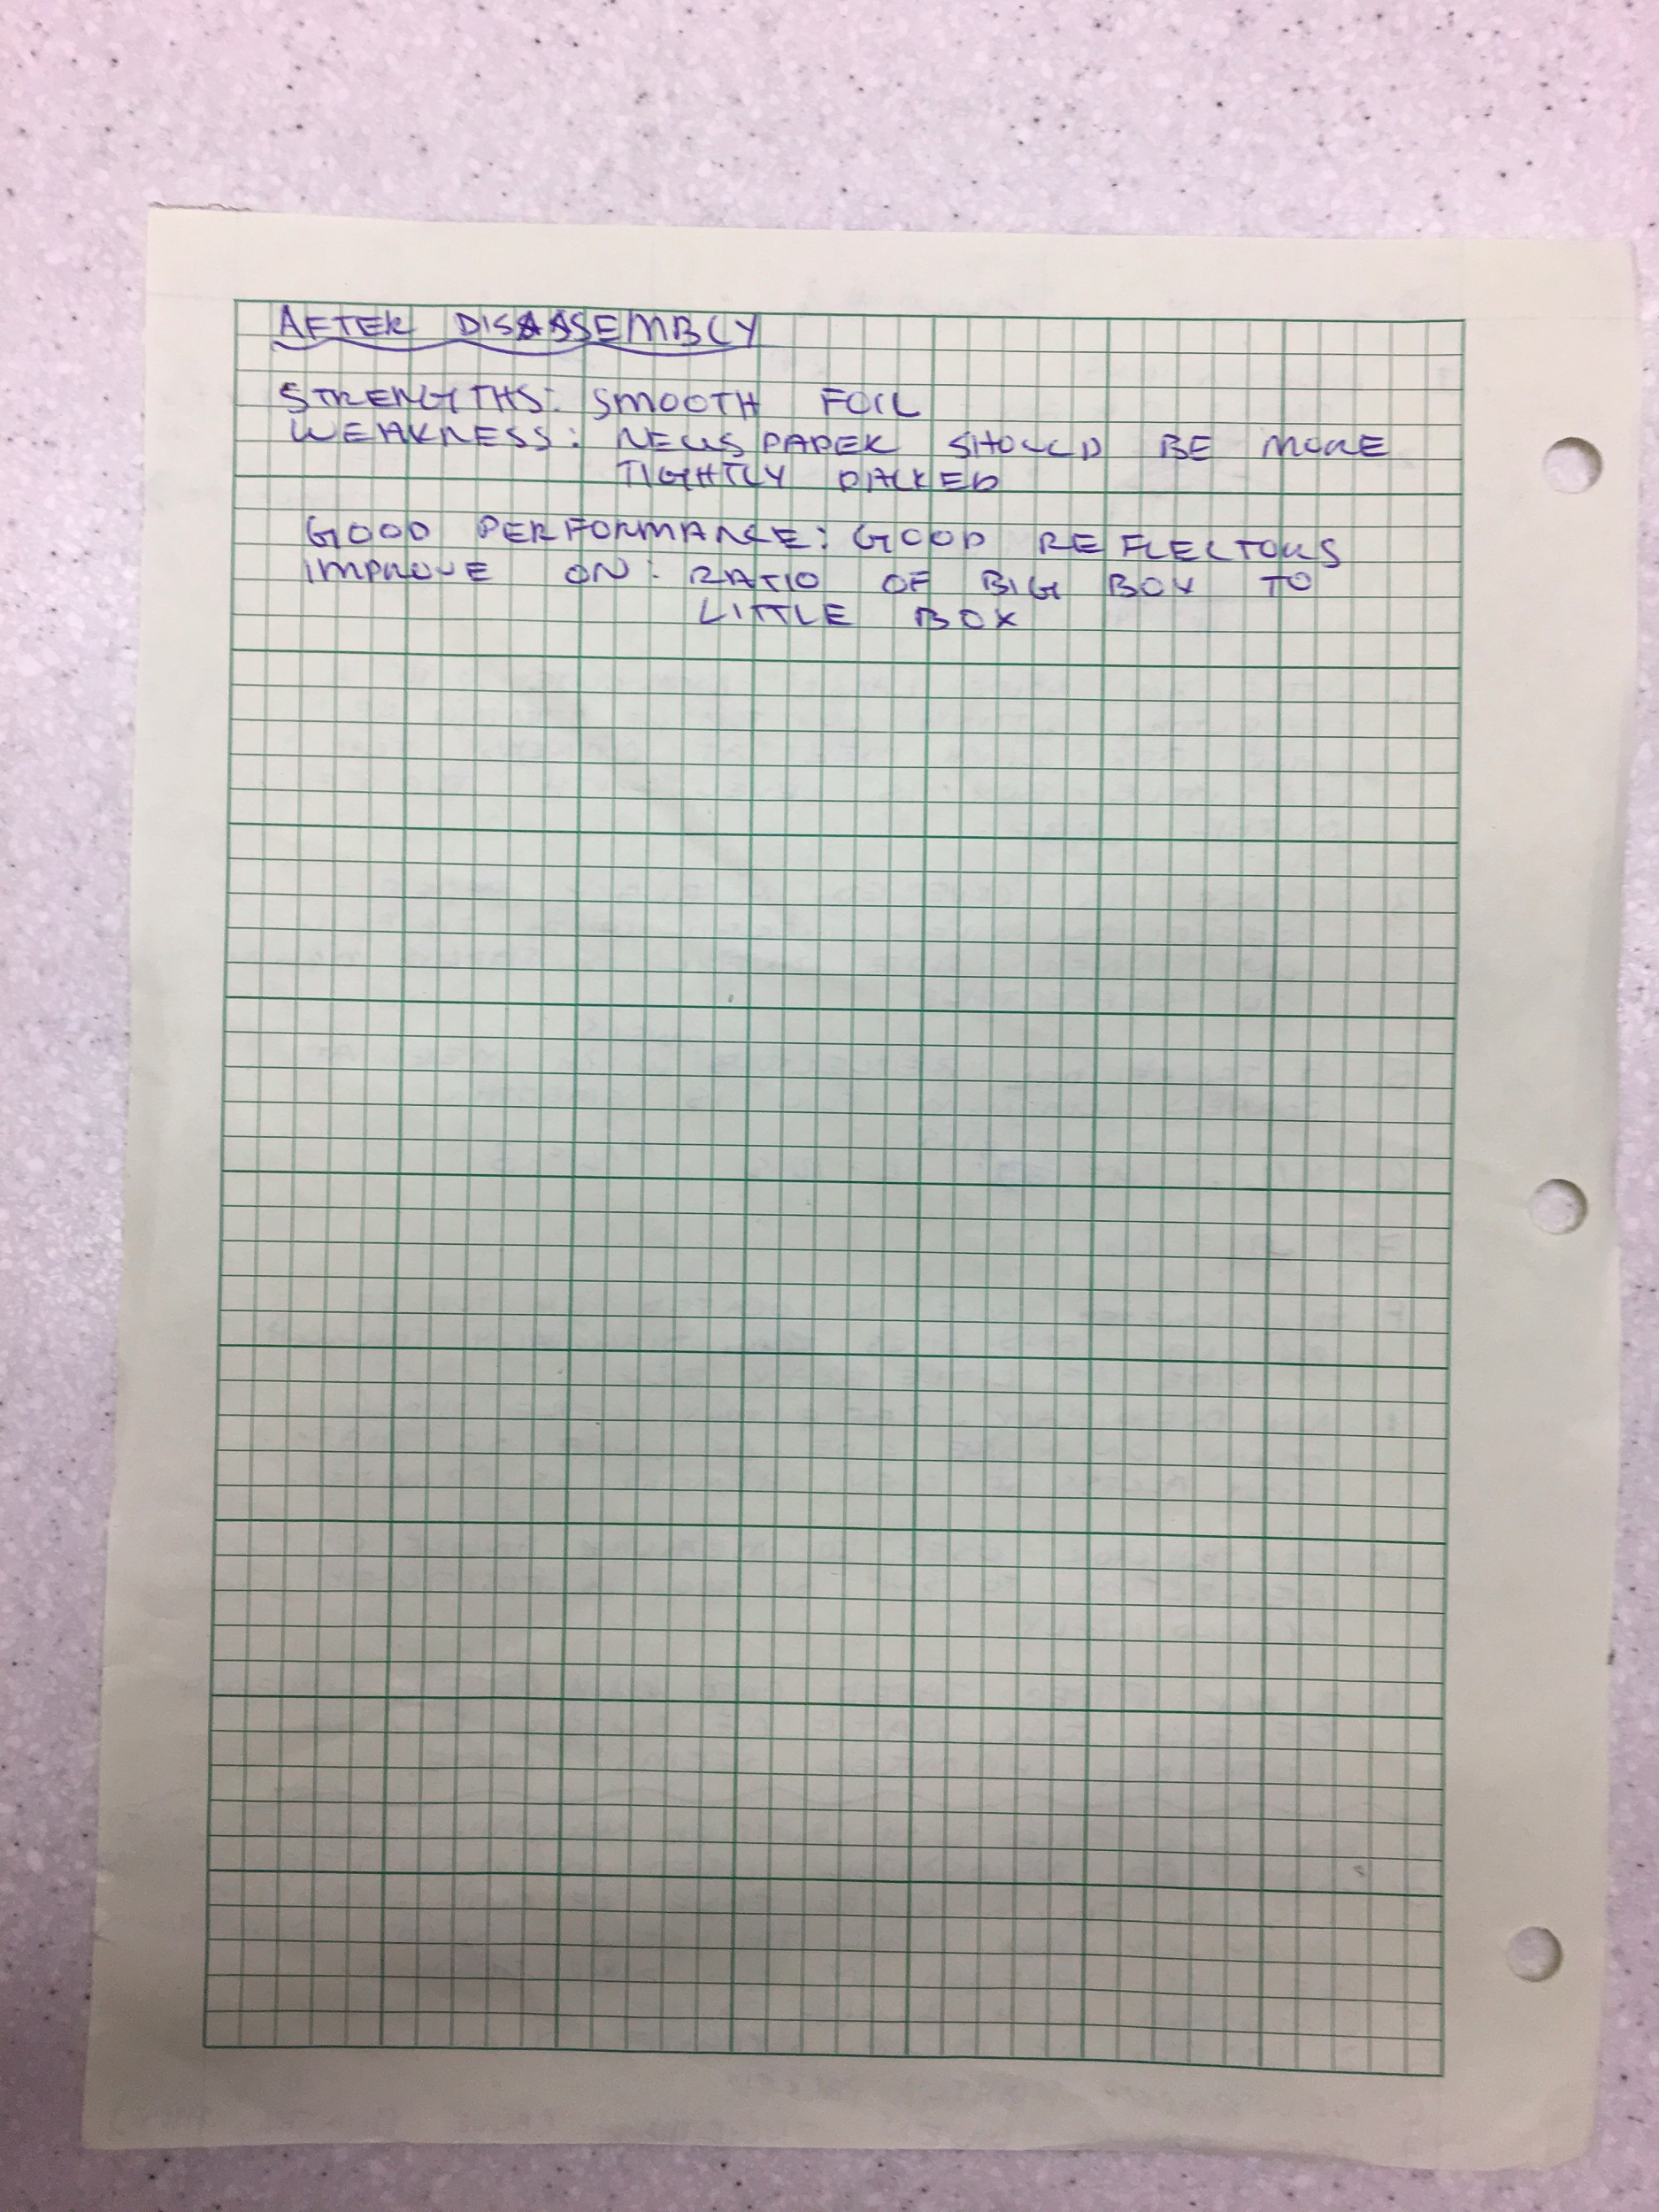 AFTER DISASSEMBLY
STRENGTHS: SMOOTH FOIL
WEAKNESS: NEWSPAPER SHOULD BE MORE
TIGHTLY PACKED
GOOD PERFORMANCE: GOOD REFLECTORS
IMPROVE ON: RATIO OF BIG BOX TO
LITTLE BOX